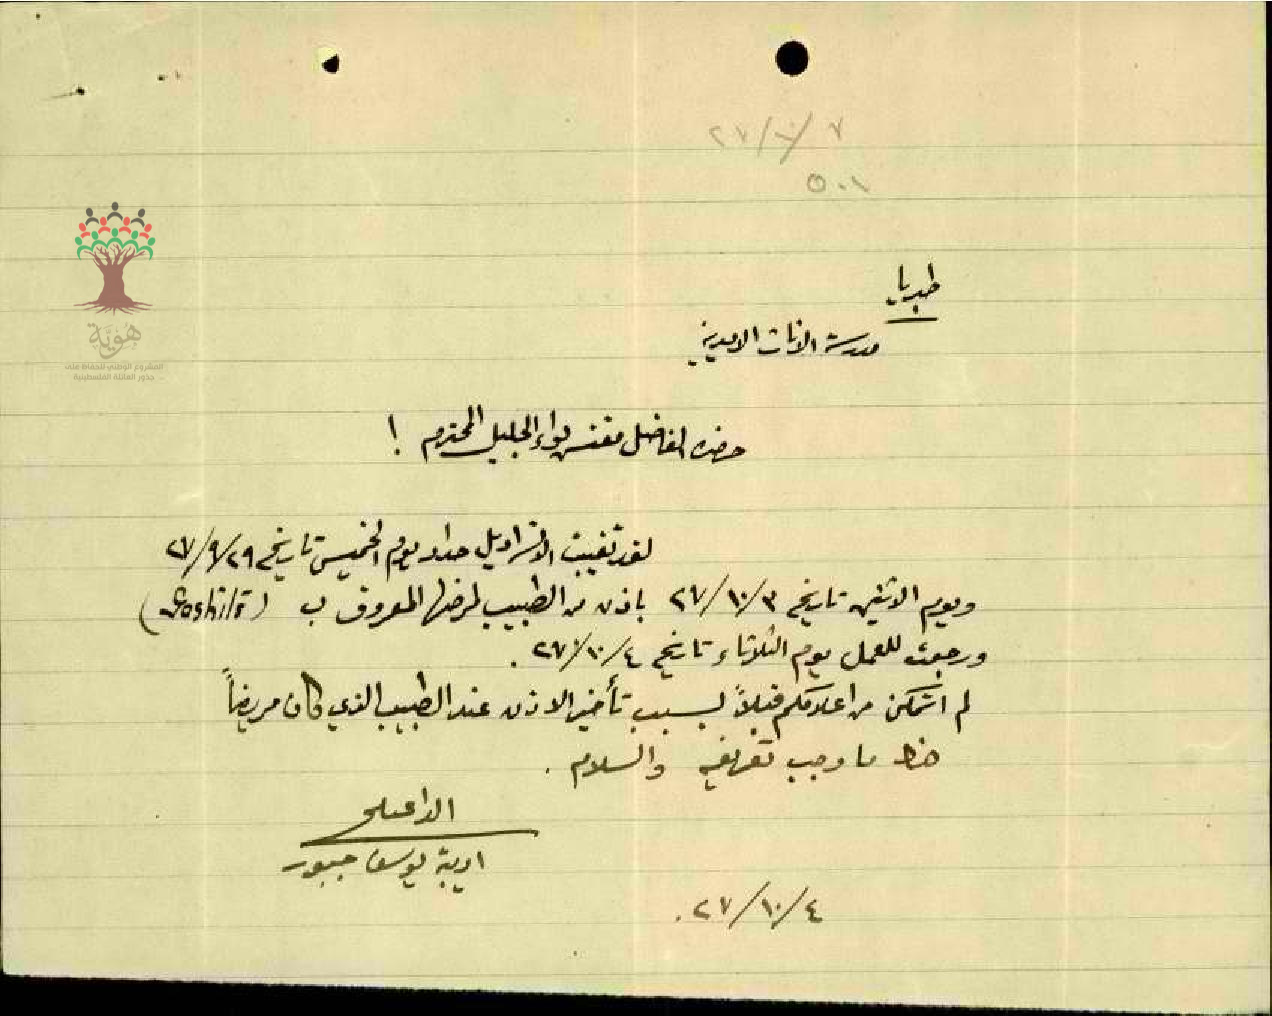 ٢٧/١٠/٧
٥٠١
هُوِيَّة
المشروع الوطني للحفاظ على
جذور العائلة الفلسطينية
طبريا
مدرسة الاناث الاميرية
حضرة الفاضل مفتش لواء الجليل المحترم !
لقد تغيبت اديل حداد يوم الخميس تاريخ ٢٧/٩/٢٩
ويوم الاثنين تاريخ ٢٧/١٠/٣ باذن من الطبيب لمرضها المعروف ب
ورجعت للعمل يوم الثلاثاء تاريخ ٢٧/١٠/٤ .
لم اتمكن من اعلامكم قبلاً بسبب تأخير الاذن عند الطبيب الذي كان مريضاً
هذا ما وجب تعريفه والسلام .
الداعية
اديبة يوسف جبور
٢٧/١٠/٤.